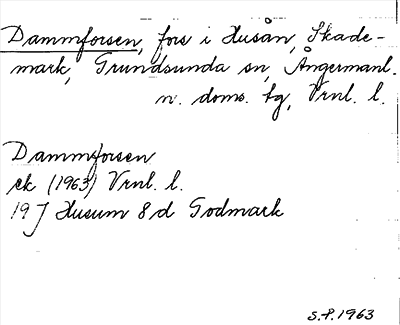 Dammforsen, fors i Husån, Skade-
mark, Grundsunda sn, Ångermanl.
n. doms. tg, Vrnl. l.
Dammforsen
ek (1963) Vrnl. l.
19 J Husum 8 d Godmark
S.P. 1963